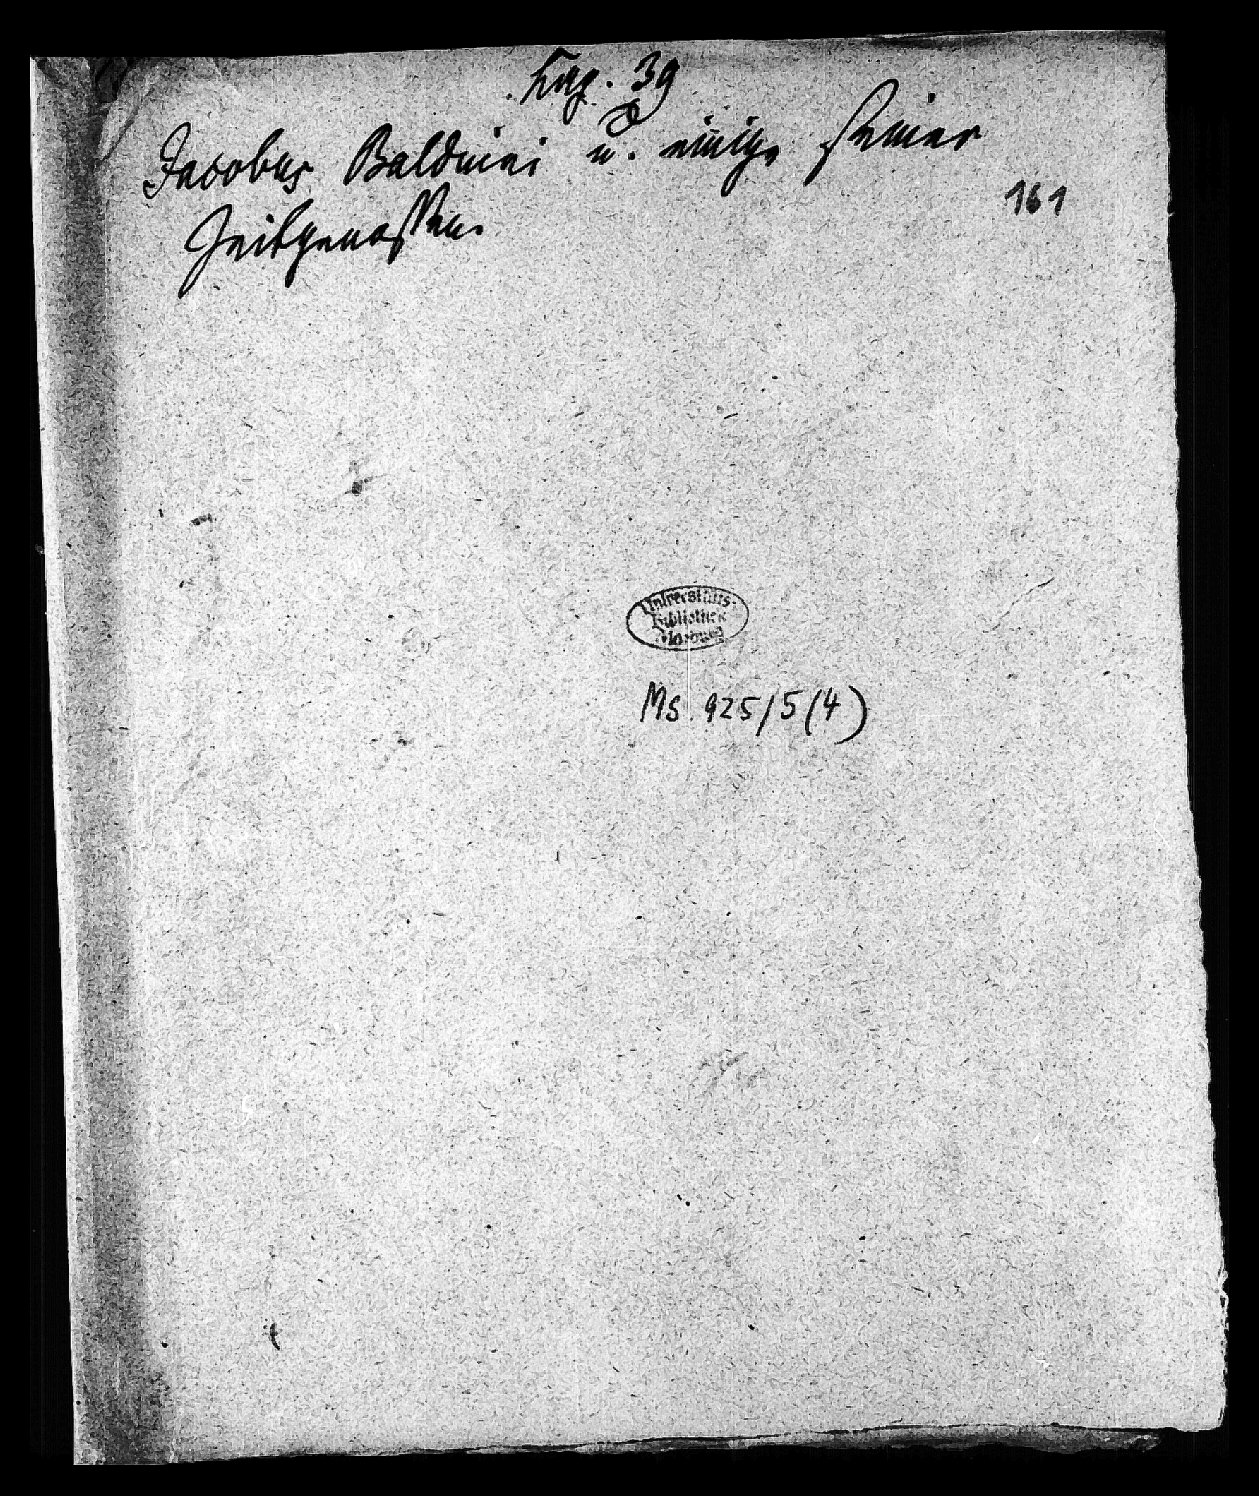 Kap. 39
Jacobus Balduini u. einige seiner
Zeitgenossen.
161
Universitäts-
Bibliothek
Marburg
Ms. 925/5(4)